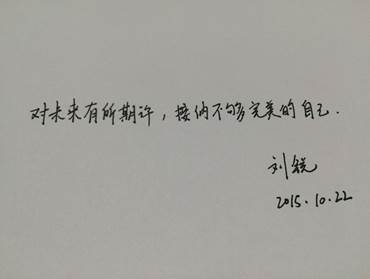 对未来有所期许，接纳不够完美的自己.
刘锐
2015.10.22